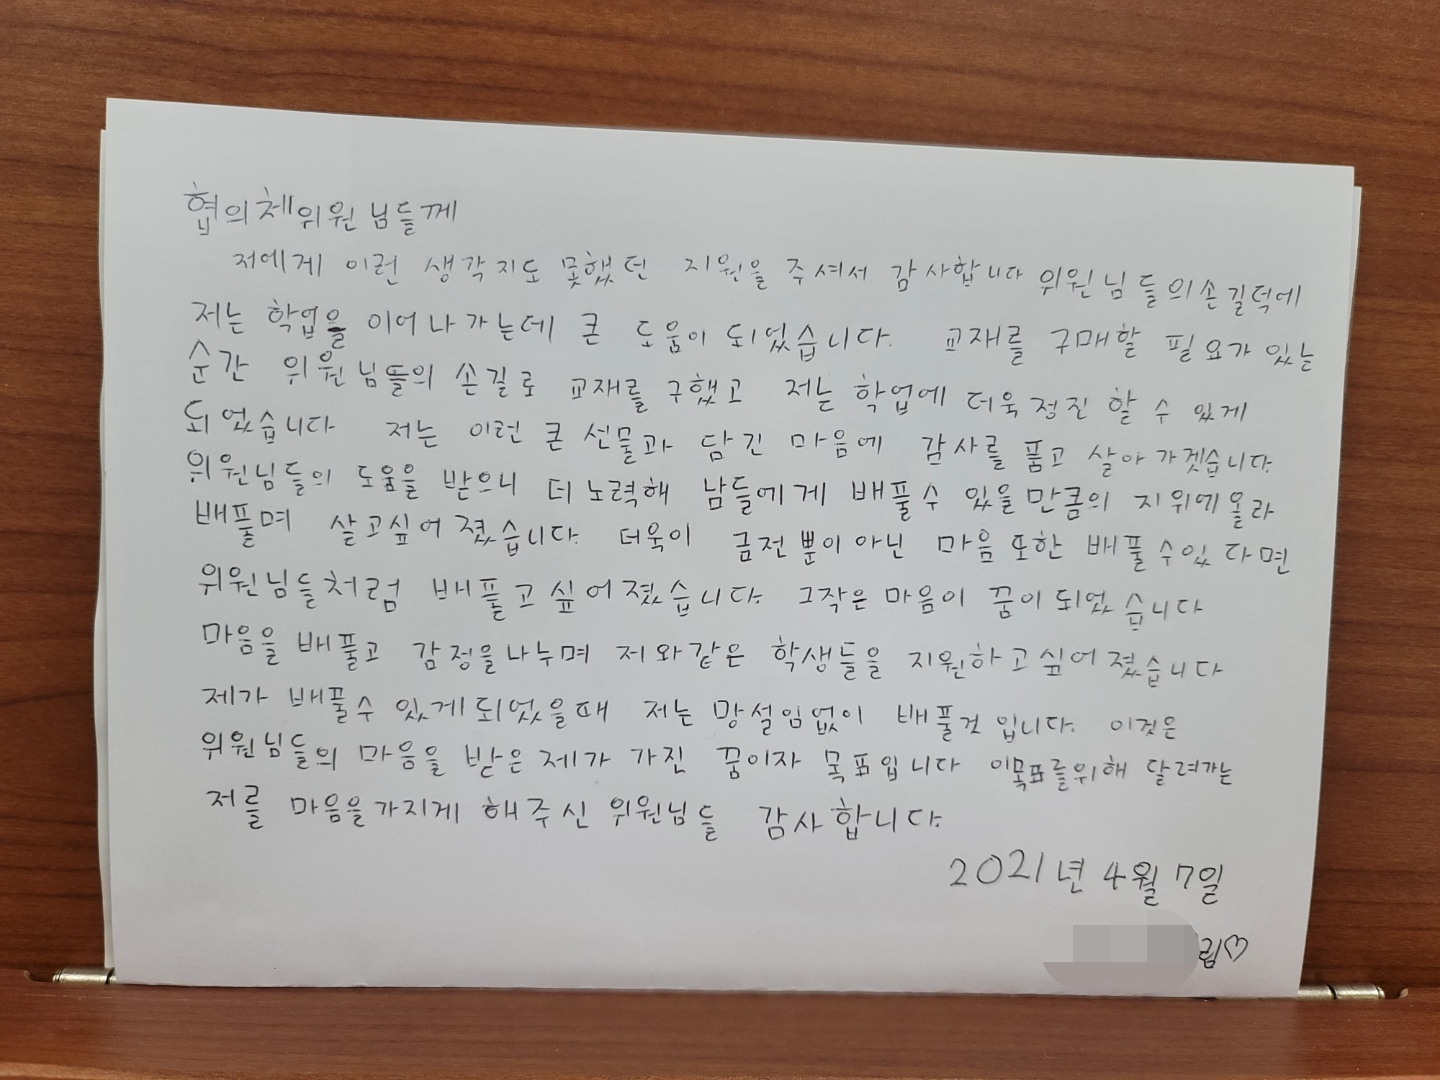 협의체위원님들께
저에게 이런 생각지도 못했던 지원을 주셔서 감사합니다 위원님들의손길덕에
저는 학업을 이어나가는데 큰 도움이 되었습니다. 교재를 구매할 필요가 있는
순간 위원님들의 손길로 교재를 구했고 저는 학업에 더욱 정진 할 수 있게
되었습니다 저는 이런 큰 선물과 담긴 마음에 감사를 품고 살아 가겟습니다.
위원님들의 도움을 받으니 더 노력해 남들에게 배풀수 있을만큼의 지위에올라
배풀며 살고싶어 졌습니다. 더욱이 금전뿐이아닌 마음 또한 배풀수있 다면
위원님들처럼 배풀고싶어졌습니다. 그작은 마음이 꿈이 되었습니다
마음을 배풀고 감정을나누며 저와같은 학생들을 지원하고싶어졌습니다
제가 배풀수 있게되었을때 저는 망설임없이 배풀것 입니다. 이것은
위원님들의 마음을 받은 제가 가진 꿈이자 목표입니다 이목표를위해 달려가는
저를 마음을가지게 해주신 위원님들 감사합니다.
2021년 4월 7일
림♡